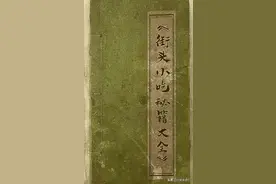 《街头小吃秘籍大全》